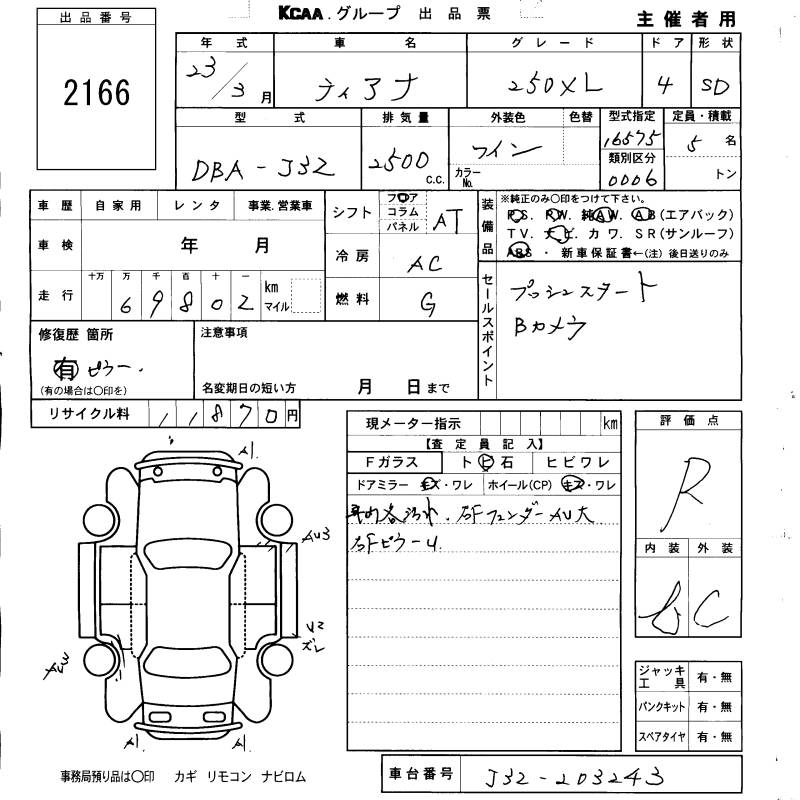 KCAA.グループ 出品票
主催者用
出品番号
2166
年式 車名 グレード ドア 形状
23/3月 ティアナ 250XL 4 SD
型式 排気量 外装色 色替 型式指定 定員・積載
DBA-J32 2500 C.C. ワイン カラーNo. 16575 5名
類別区分
0006 トン
車歴 自家用 レンタ 事業.営業車
車検 年 月
走行 十万 万 千 百 十 一
69802 km マイル
シフト フロア コラム パネル AT
冷房 AC
燃料 G
装備品
※純正のみ〇印をつけて下さい。
P.S. P.W. 純A.W. A.B(エアバック)
TV. ナビ. カワ. SR(サンルーフ)
ABS ・ 新車保証書←(注)後日送りのみ
セールスポイント
プッシュスタート
Bカメラ
修復歴 箇所
有 ピラー.
(有の場合は〇印を)
注意事項
名変期日の短い方 月 日まで
リサイクル料 11870円
現メーター指示 km
【査定員記入】
Fガラス トビ石 ヒビワレ
ドアミラー キズ・ワレ ホイール(CP) キズ・ワレ
右Fフェンダー AU大
右Fピラー U.
評価点
R
内装 外装
C
ジャッキ工具 有・無
パンクキット 有・無
スペアタイヤ 有・無
A1.
AU3
U2
ズレ
A1
A1.
事務局預り品は〇印 カギ リモコン ナビロム
車台番号 J32-203243